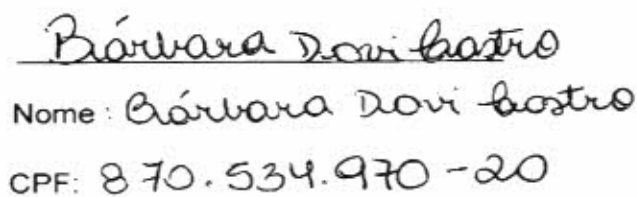 Bárbara Davi Castro
Nome: Bárbara Davi Castro
CPF: 870.534.970-20